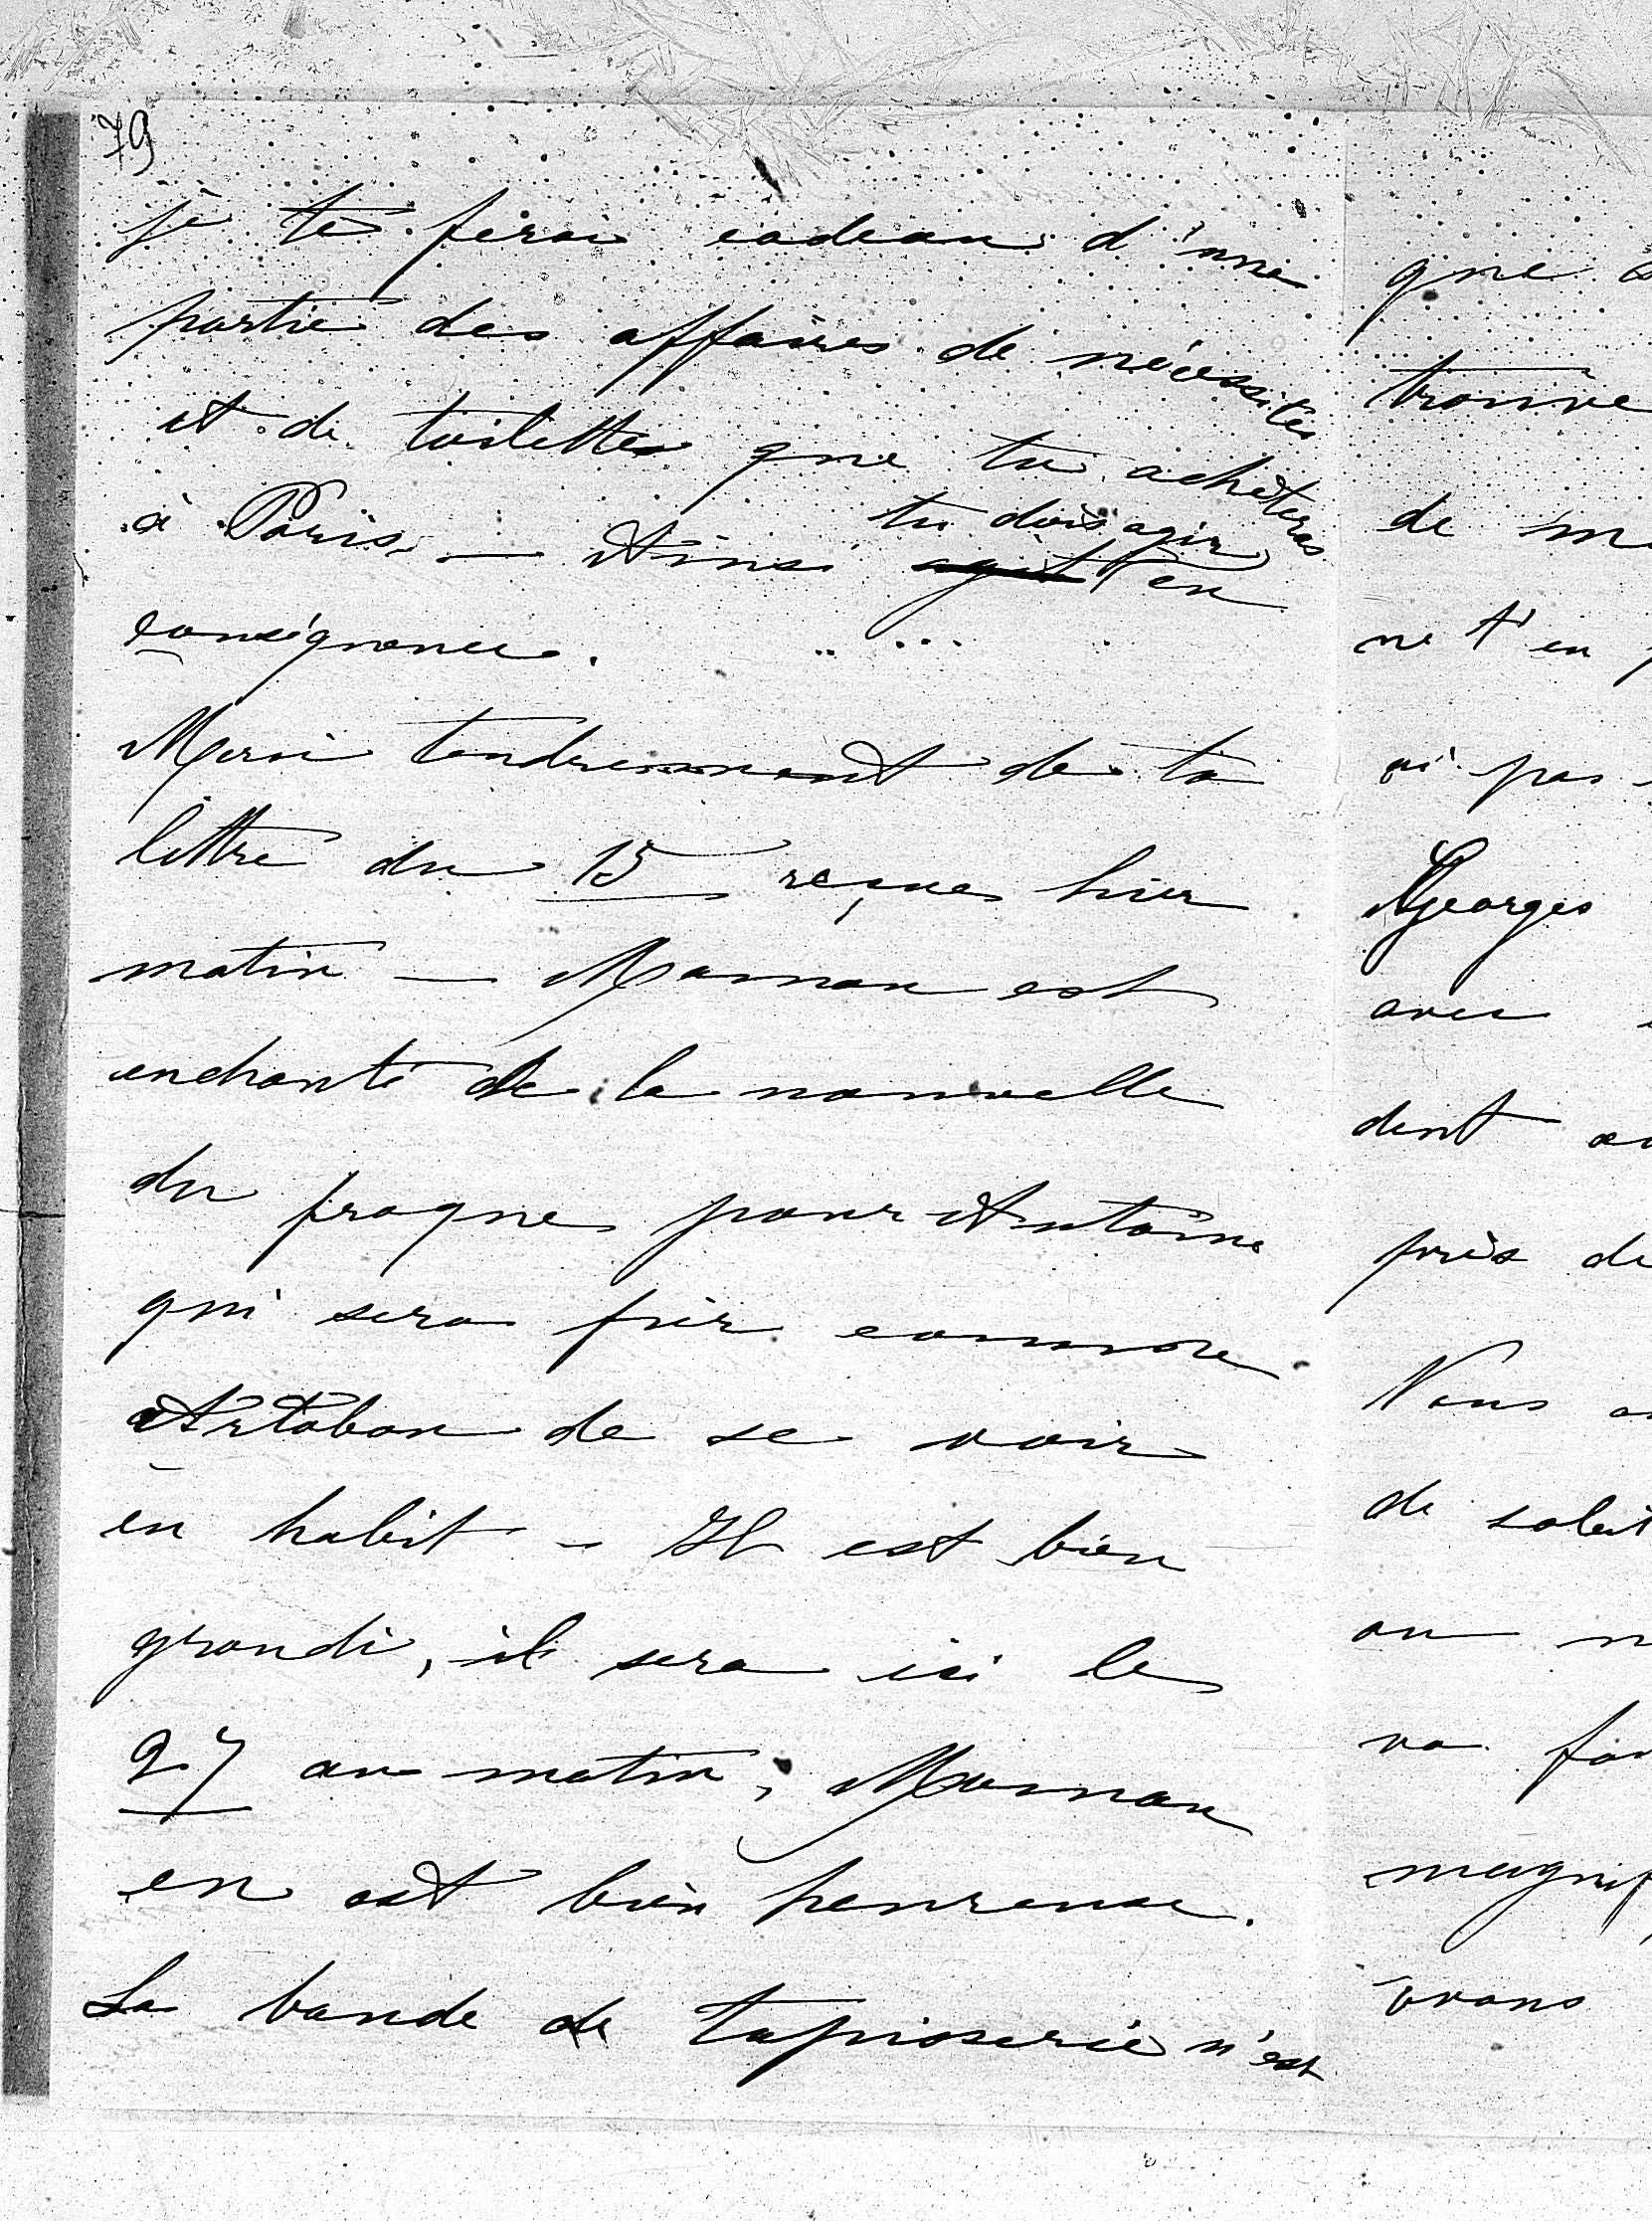 79
je te ferai cadeau d'une
partie des affaires de nécessités
et de toilettes que tu achèteras
à Paris. — Ainsi tu dois agir en
conséquence.
Merci tendrement de ta
lettre du 15 reçue hier
matin — Maman est
enchanté de la nouvelle
du fraque pour Antoine
qui sera fier comme
Artaban de se voir
en habit — Il est bien
grandi, il sera ici le
27 au matin, Maman
en est bien heureuse.
La bande de tapisserie n'est
que
trouve
de
ne t'en
ai pas
Georges
avec
dent
près de
Nous
de soleil
on
va